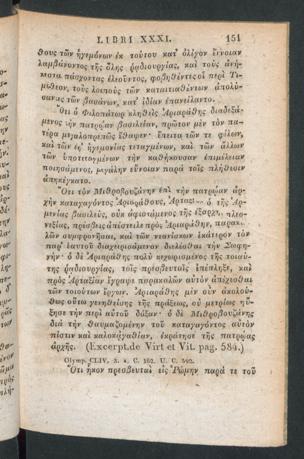 LIBRI XXXI. 151
θους τῶν ἡγεμόνων ἐκ τούτου κατ' ὀλίγον ἔννοιαν
λαμβάνοντος τῆς ὅλης ῥᾳδιουργίας, καὶ τοὺς ἀνή-
κεστα πάσχοντας ἐλεοῦντος, φοβηθέντες οἱ περὶ Τι-
μόθεον, τοὺς λοιποὺς τῶν καταιτιαθέντων ἀπολύ-
σαντες τῶν βασάνων, κατ' ἰδίαν ἐπανείλαντο.
Ὅτι ὁ Φιλοπάτωρ κληθεὶς Ἀριαράθης διαδεξά-
μενος τὴν πατρῴαν βασιλείαν, πρῶτον μὲν τὸν πα-
τέρα μεγαλοπρεπῶς ἔθαψεν· ἔπειτα τῶν τε φίλων,
καὶ τῶν ἐφ' ἡγεμονίας τεταγμένων, καὶ τῶν ἄλλων
τῶν ὑποτεταγμένων τὴν καθήκουσαν ἐπιμέλειαν
ποιησάμενος, μεγάλην εὔνοιαν παρὰ τοῖς πλήθεσιν
ἀπηνέγκατο.
Ὅτι τὸν Μιθροβουζάνην ἐπὶ τὴν πατρῴαν ἀρ-
χὴν καταγαγόντος Ἀριαράθους, ὁ τῆς Ἀρ-
μενίας βασιλεύς, οὐκ ἀφιστάμενος τῆς ἐξαρχ. πλεο-
νεξίας, πρέσβεις ἀπέστειλε πρὸς Ἀριαράθην, παρακα-
λῶν συμφρονῆσαι, καὶ τῶν νεανίσκων ἑκάτερον τὸν
παρ' ἑαυτοῦ διαχειρισάμενον διελέσθαι τὴν Σωφη-
νήν· ὁ δὲ Ἀριαράθης πολὺ κεχωρισμένος τῆς τοιαύ-
της ῥᾳδιουργίας, τοῖς πρεσβευταῖς ἐπέπληξε, καὶ
πρὸς Ἀρταξίαν ἔγραψε παρακαλῶν αὐτὸν ἀπέχεσθαι
τῶν τοιούτων ἔργων. Ἀριαράθης μὲν οὖν ἀκολού-
θως οὕτω γενηθείσης τῆς πράξεως, οὐ μετρίως ηὔ-
ξησε τὴν περὶ αὑτοῦ δόξαν· ὁ δὲ Μιθροβουζάνης
διὰ τὴν θαυμαζομένην τοῦ καταγαγόντος αὐτὸν
πίστιν καὶ καλοκἀγαθίαν, ἐκράτησε τῆς πατρῴας
ἀρχῆς. (Excerpt. de Virt et Vit. pag. 584.)
Olymp. CLIV, 3. a. C. 162. U. C. 592.
Ὅτι ἧκον πρεσβευταὶ εἰς Ῥώμην παρά τε τοῦ